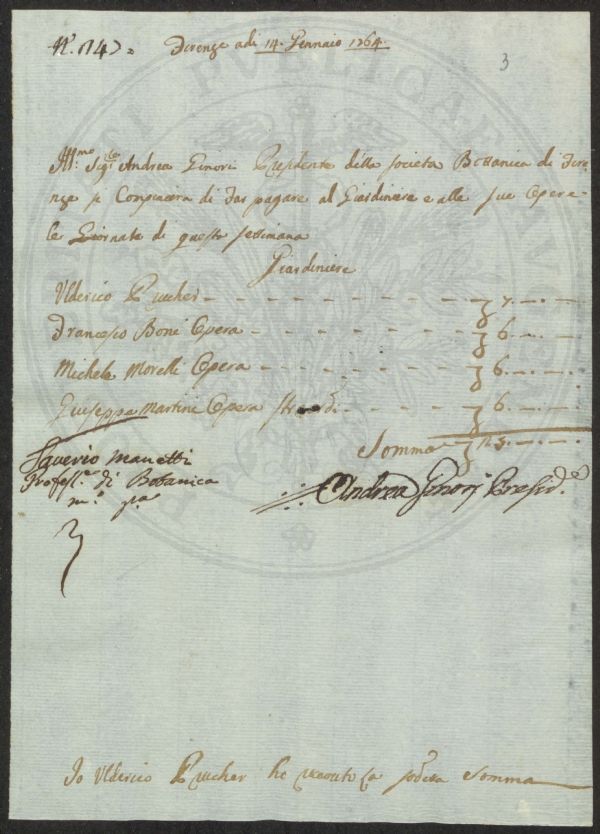 N.º 147 =
Firenze adi 14. Gennaio 1764.
3
Ill.mo Sig.re Andrea Ginori Presidente della societa Bottanica di Fire
nze si Conpiacera di Far pagare al Giardiniere e alle sue Opere
le Giornate di questa settimana
Giardiniere
Ulderico Prucher - - - 7. - . -
Francesco Boni Opera - - - 6. - . -
Michele Morelli Opera - - - 6. - . -
Giuseppe Martini Opera - - - 6. - . -
Somma
Saverio Manetti
Profess.e di Botanica
m.o p.a
Andrea Ginori Presid.e
Io Ulderico Prucher ho riceuto la sod.ta somma